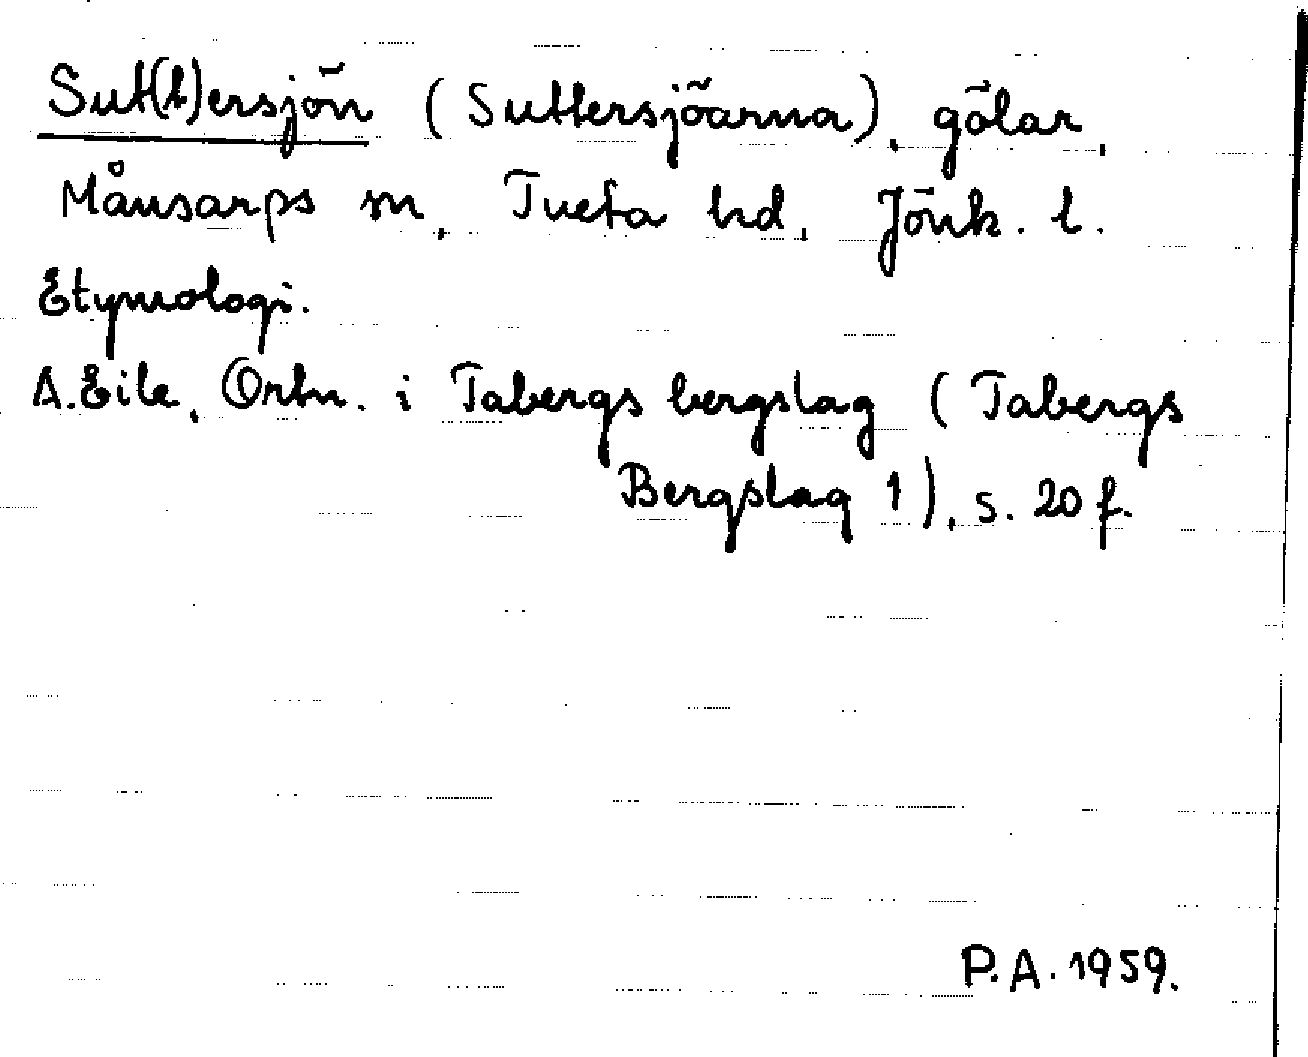 Sut(t)ersjön (Suttersjöarna), gölar,
Månsarps sn, Tveta hd, Jönk. l.
Etymologi.
A. Eile, Ortn. i Tabergs bergslag (Tabergs
Bergslag 1), s. 20 f.
P.A. 1959.